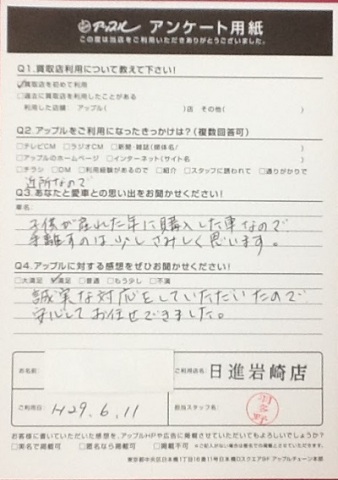 アップル アンケート用紙
この度は当店をご利用いただきありがとうございました。
Q1.買取店利用について教えて下さい!
☑買取店を初めて利用
□過去に買取店を利用したことがある
利用した店舗: アップル( )店 その他( )
Q2.アップルをご利用になったきっかけは?(複数回答可)
□テレビCM □ラジオCM □新聞・雑誌(媒体名/ )
□アップルのホームページ □インターネット(サイト名 )
□チラシ □DM □利用経験があるので □紹介 □スタッフに誘われて □通りがかりで
近所なので
Q3.あなたと愛車との思い出をお聞かせください!
車名:
子供が産れた年に購入した車なので
手離すのは少しさみしく思います。
Q4.アップルに対する感想をぜひお聞かせください!
□大満足 ☑満足 □普通 □もう少し □不満
誠実な対応をしていただいたので
安心してお任せできました。
お名前:
ご利用店名: 日進岩崎店
ご利用日: H29.6.11
担当スタッフ名:
お客様に書いていただいた感想を、アップルHPや広告に掲載させていただいてもよろしいでしょうか?
□実名で掲載可 □匿名なら掲載可 □掲載不可
東京都中央区日本橋1丁目16番11号日本橋Dスクエア3F アップルチェーン本部